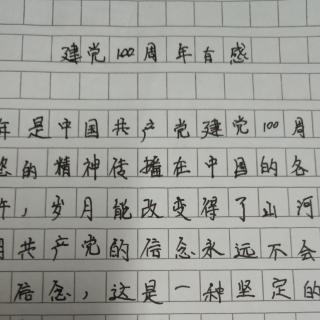 建党100周年有感
年是中国共产党建党100周
的精神传播在中国的各
，岁月能改变得了山河
共产党的信念永远不会
信念，这是一种坚定的